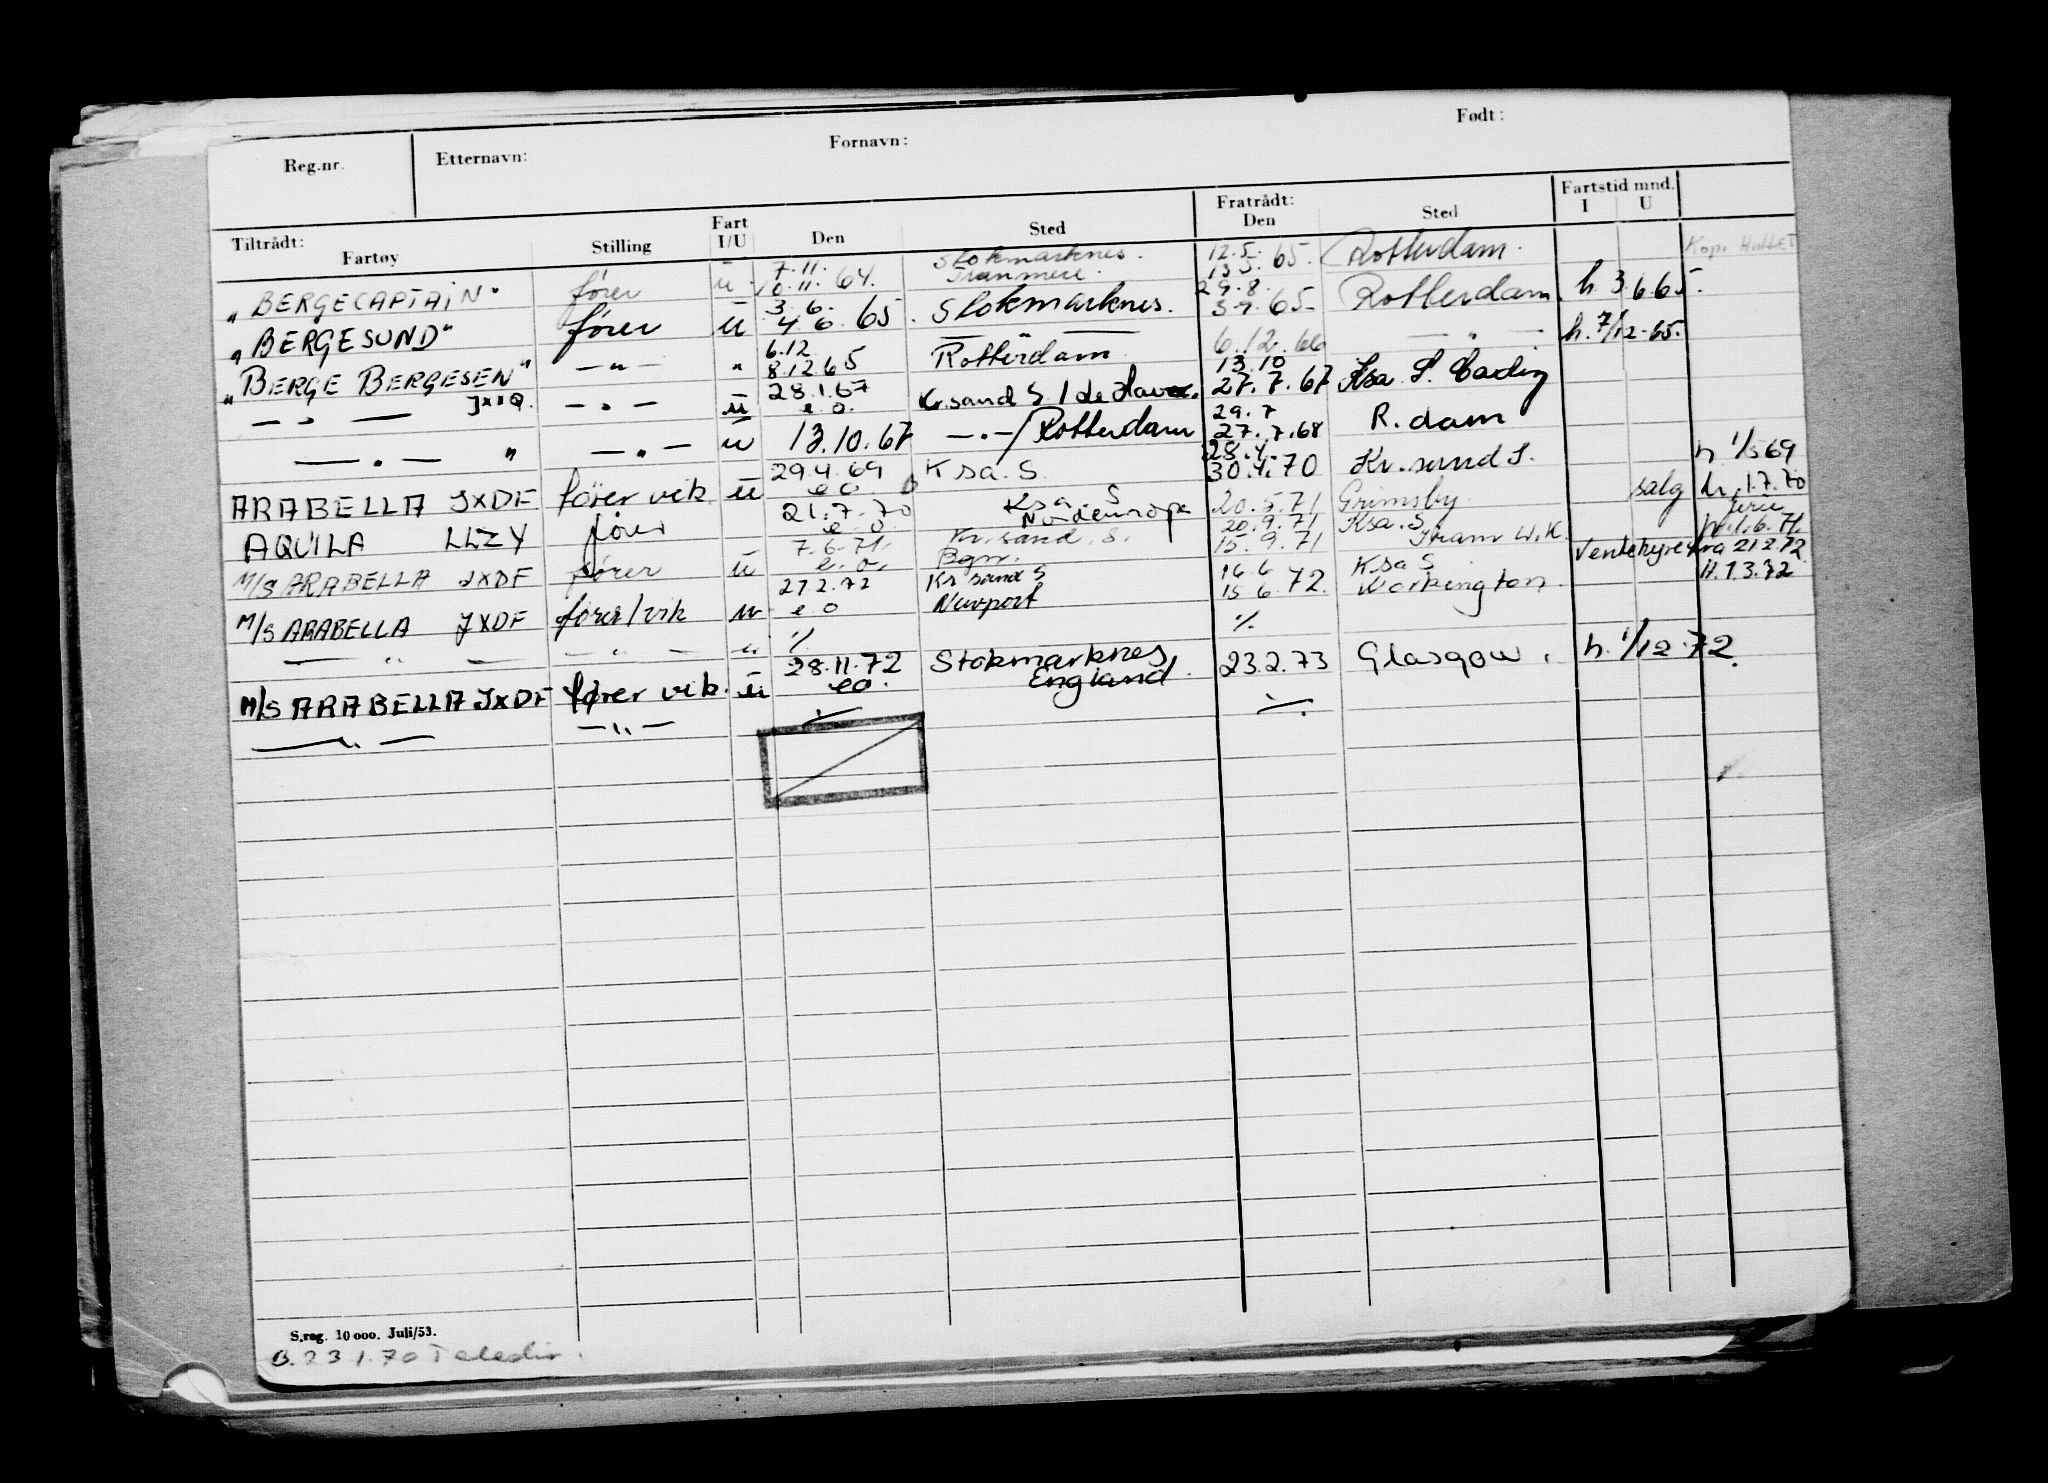 Reg.nr. Etternavn: Fornavn: Født:
Tiltrådt: Fartøy Stilling Fart I/U Den Sted Fratrådt: Den Sted Fartstid mnd. I U
Stokmarknes. 12.5. Kop.
"BERGECAPTAIN" fører u 7.11. 10.11.64. Tranmere. 13.5.65. Rotterdam.
"BERGESUND" fører u 3.6. 4.6.65. Stokmarknes. 29.8. 3.9.65 Rotterdam. h. 3.6.65.
"BERGE BERGESEN" — " — " 6.12 8.12.65 Rotterdam — " — 6.12.66 — " — h. 7/12-65.
— " — JXIQ. — " — u 28.1.67 e.o. Kr.sand S / de Havre. 13.10 27.7.67 Ksa. S.
— " — " — " — u 13.10.67 — " — / Rotterdam 29.7 27.7.68 R.dam
ARABELLA JXDF fører vik u 29.4.69 e.o. Ksa. S. 28.4. 30.4.70 Kr.sund S. h 1/5 69
AQUILA LLZY fører 21.7.70 e.o. Ksa S Nordeuropa 20.5.71 Grimsby salg h. 1.7.70
M/S ARABELLA JXDF fører u 7.6.71. e.o. Kr.sand. S. Bgn. 20.9.71 15.9.71 Ksa. S ferie h.1.6.71.
M/S ARABELLA JXDF fører/vik u 27.2.72 e.o Kr sand S Newport 16.6 15.6.72. Ksa S Workington. Ventehyre fra 21.2.72 H.1.3.72
— " — — " — " % %
M/S ARABELLA JXDF fører vik. u 28.11.72 e.o. Stokmarknes England. 23.2.73 Glasgow. h. 1/12.72.
— " — — " — % %
S.reg. 10 000. Juli/53.
B.23 1.70